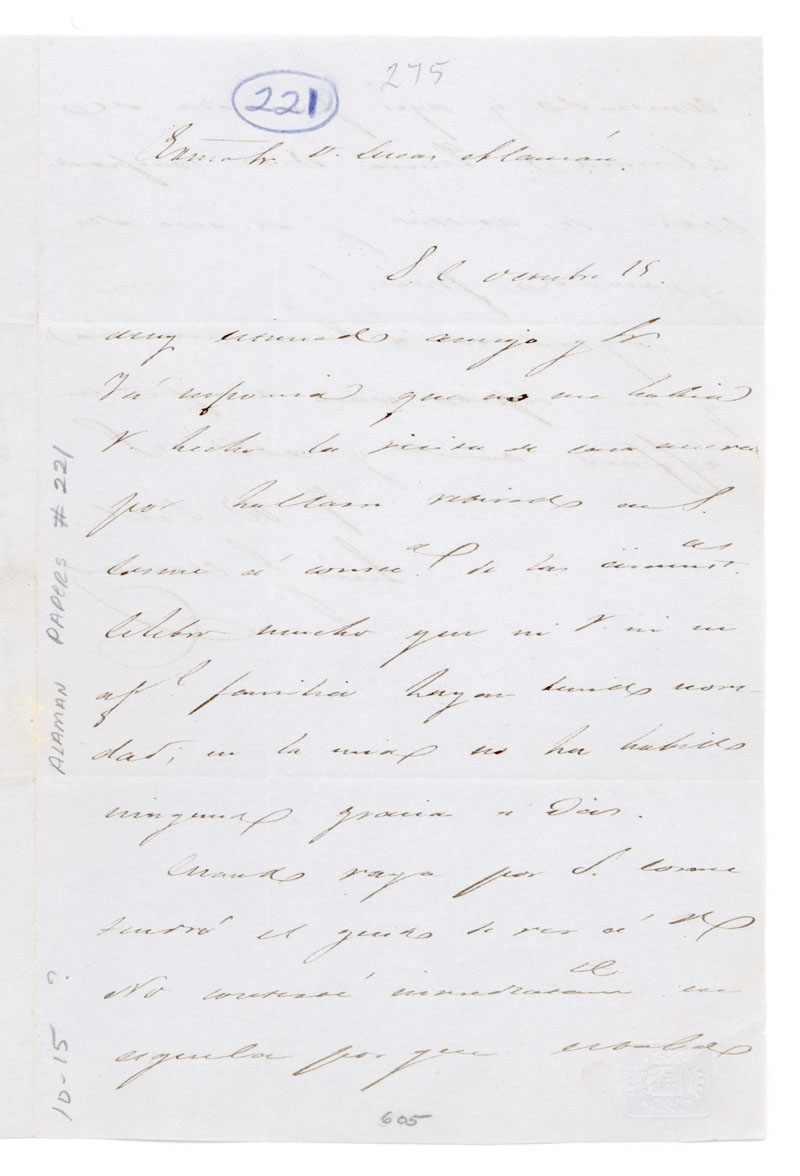 275
221
Exmo Sr. D. Lucas Alamán.
S. C. octubre 15.
muy estimado amigo y Sr.
Ya suponia que no me habia
V. hecho la visita de casa nueva
por hallarse retirado en S.
Cosme á consec.ª de las circunst.as
Celebro mucho que ni V. ni su
af.e familia hayan tenido nove-
dad; en la mia no ha habido
ninguna gracias a Dios.
Cuando vaya por S. Cosme
tendré el gusto de ver á V.
No contesté inmediatam.te su
esquela por que estaba
ALAMAN PAPERS # 221
10-15 ?
605